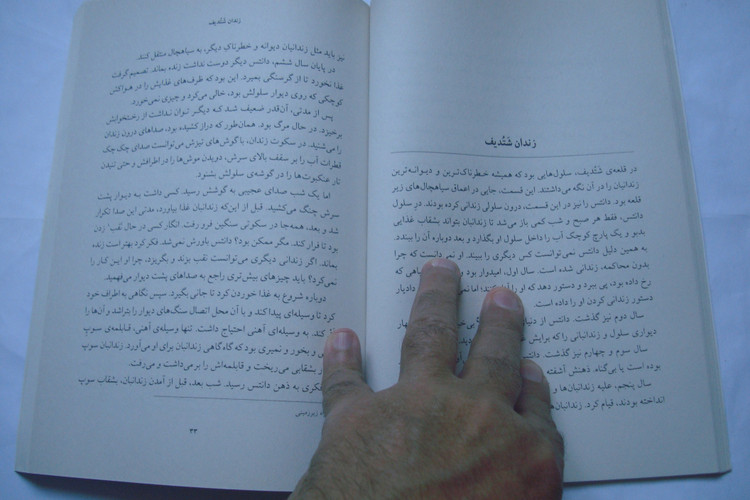 زندان شَتُدیف
در قلعه‌ی شَتُدیف، سلول‌هایی بود که همیشه خطرناک‌ترین و دیوانه‌ترین
زندانیان را در آن نگه می‌داشتند. این قسمت، جایی در اعماق سیاهچال‌های زیر
قلعه بود. دانتس را نیز در این قسمت، درون سلولی زندانی کرده بودند. درِ سلول
دانتس، فقط هر صبح و شب کمی باز می‌شد تا زندانبان بتواند بشقاب غذایی
بدبو و یک پارچ کوچک آب را داخل سلول او بگذارد و بعد دوباره آن را ببندد.
به همین دلیل دانتس نمی‌توانست کس دیگری را ببیند. او نمی‌دانست که چرا
بدون محاکمه، زندانی شده است. سال اول، امیدوار بود که
رخ داده بود، پی ببرد و دستور دهد که او را کنند؛ اما دادیار
دستور زندانی کردن او را داده است.
سال دوم نیز گذشت. دانتس از دنیای
دیواری سلول و زندانبانی را که برایش
سال سوم و چهارم نیز گذشت. دانتس
است یا به بی‌گناهی. ذهنش آشفته
سال پنجم، علیه زندانبان‌ها و
انداخته بودند، قیام کرد. زندانبان‌ها
زندان شَتُدیف
نیز باید مثل زندانیان دیوانه و خطرناکِ دیگر، به سیاهچال منتقل کنند.
در پایان سال ششم، دانتس دیگر دوست نداشت زنده بماند. تصمیم گرفت
غذا نخورد تا از گرسنگی بمیرد. این بود که ظرف‌های غذایش را در هواکش
کوچکی که روی دیوار سلولش بود، خالی می‌کرد و چیزی نمی‌خورد.
پس از مدتی، آن‌قدر ضعیف شد که دیگر توان نداشت از رختخوابش
برخیزد. در حال مرگ بود. همان‌طور که دراز کشیده بود، صداهای درون زندان
را می‌شنید. در سکوت زندان، با گوش‌های تیزش می‌توانست صدای چک چک
قطرات آب را بر سقف بالای سرش، دویدن موش‌ها را در اطرافش و حتی تنیدن
تار عنکبوت‌ها را در گوشه‌ی سلولش بشنود.
اما یک شب صدای عجیبی به گوشش رسید. کسی داشت به دیوار پشت
سرش چنگ می‌کشید. قبل از این‌که زندانبان غذا بیاورد، مدتی این صدا تکرار
شد و بعد، همه‌جا در سکوتی سنگین فرو رفت. انگار کسی در حال نَقب¹ زدن
بود تا فرار کند. مگر ممکن بود؟ دانتس باورش نمی‌شد. فکر کرد بهتر است زنده
بماند. اگر زندانی دیگری می‌توانست نقب بزند و بگریزد، چرا او این کار را
نمی‌کرد؟ باید چیزهای بیش‌تری راجع به صداهای پشت دیوار می‌فهمید.
دوباره شروع به غذا خوردن کرد تا جانی بگیرد. سپس نگاهی به اطراف خود
کرد تا وسیله‌ای پیدا کند و با آن محل اتصال سنگ‌های دیوار را بتراشد و آن‌ها را
کند. به وسیله‌ای آهنی احتیاج داشت. تنها وسیله‌ی آهنی، قابلمه‌ی سوپ
و بخور و نمیری بود که گاه‌گاهی زندانبان برای او می‌آورد. زندانبان سوپ
بشقابی می‌ریخت و قابلمه‌اش را برمی‌داشت و می‌رفت.
فکری به ذهن دانتس رسید. شب بعد، قبل از آمدن زندانبان، بشقاب سوپ
زیرزمینی
۳۳